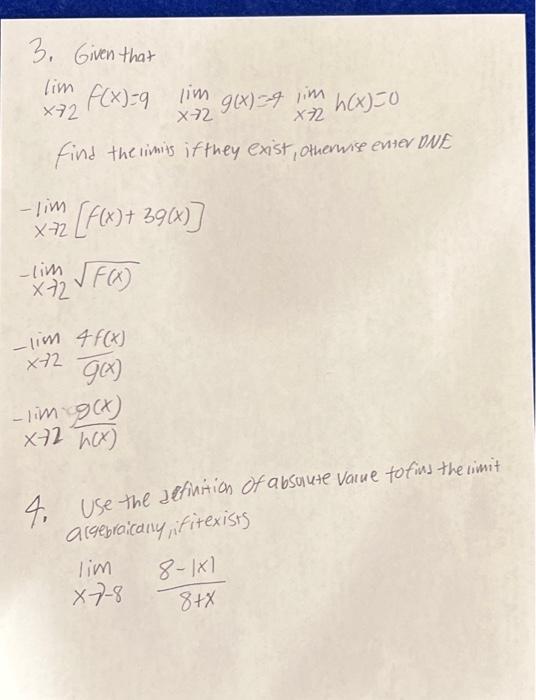 3. Given that
lim x→2 f(x)=9 lim x→2 g(x)=-9 lim x→2 h(x)=0
find the limits if they exist, otherwise enter DNE
-lim x→2 [f(x)+ 3g(x)]
-lim x→2 √F(x)
-lim x→2 4f(x)/g(x)
-lim x→2 g(x)/h(x)
4. Use the definition of absolute value to find the limit
algebraically, if it exists
lim x→-8 8-|x|/8+x